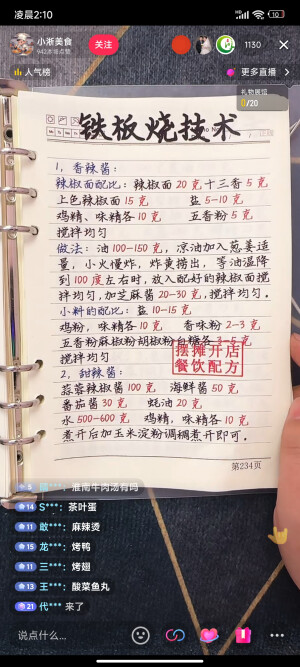 凌晨2:10
10
小淅美食
942本场点赞
关注
1130
人气榜
更多直播
礼物展馆
0/20
铁板烧技术
1，香辣酱：
辣椒面配比：辣椒面20克十三香5克
上色辣椒面15克 盐5-10克
鸡精、味精各10克 五香粉5克
搅拌均匀
做法：油100-150克，凉油加入葱姜适
量，小火慢炸，炸黄捞出，等油温降
到100度左右时，放入配好的辣椒面搅
拌均匀，加芝麻酱20-30克，搅拌均匀。
小料的配比：盐10-15克
鸡粉，味精各10克 香味粉2-3克
五香粉麻椒粉胡椒粉白糖各3-5克
搅拌均匀
摆摊开店
餐饮配方
2，甜辣酱：
蒜蓉辣椒酱100克 海鲜酱50克
番茄酱30克 蚝油20克
水500-600克 鸡精，味精各10克
煮开后加玉米淀粉调稠煮开即可。
第234页
淮南牛肉汤有吗
14 S***：茶叶蛋
11 敢***：麻辣烫
15 龙***：烤鸭
11 三***：烤翅
13 王***：酸菜鱼丸
21 代*** 来了
说点什么...